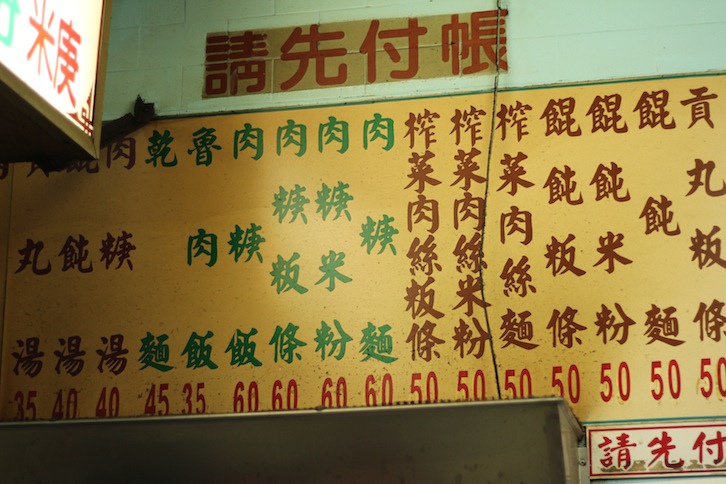 請先付帳
貢丸粄條 50
餛飩麵 50
餛飩米粉 50
餛飩粄條 50
榨菜肉絲麵 50
榨菜肉絲米粉 50
榨菜肉絲粄條 50
肉焿麵 60
肉焿米粉 60
肉焿粄條 60
肉焿飯 60
魯肉飯 35
乾麵 45
肉焿湯 40
餛飩湯 40
貢丸湯 35
請先付